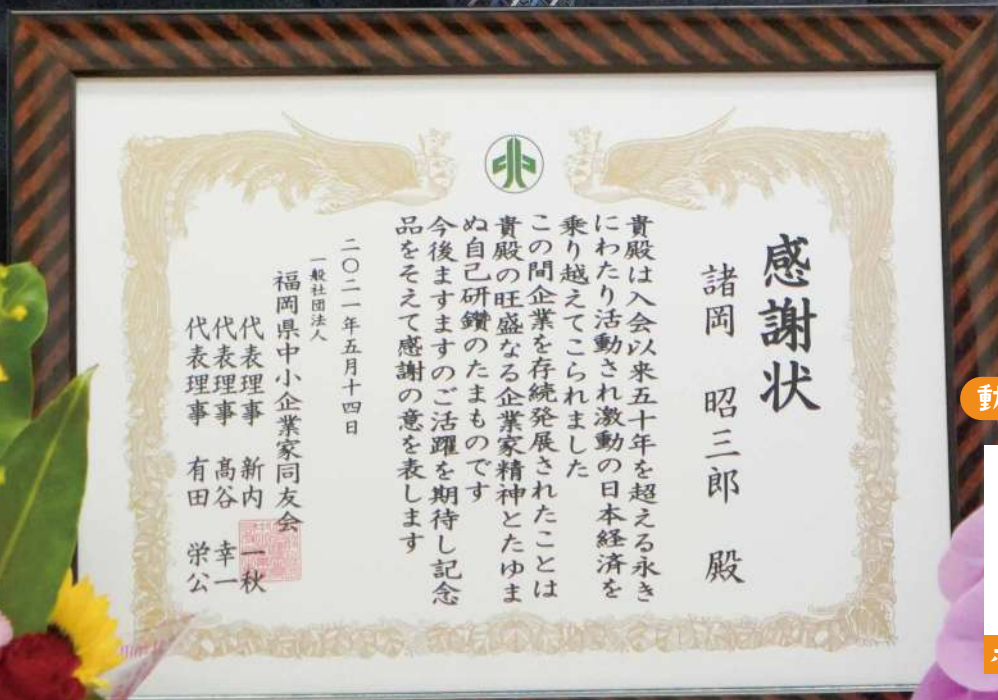 感謝状
諸岡 昭三郎 殿
貴殿は入会以来五十年を超える永き
にわたり活動され激動の日本経済を
乗り越えてこられました
この間企業を存続発展されたことは
貴殿の旺盛なる企業家精神とたゆま
ぬ自己研鑽のたまものです
今後ますますのご活躍を期待し記念
品をそえて感謝の意を表します
二〇二一年五月十四日
一般社団法人
福岡県中小企業家同友会
代表理事 新内 一秋
代表理事 髙谷 幸一
代表理事 有田 栄公